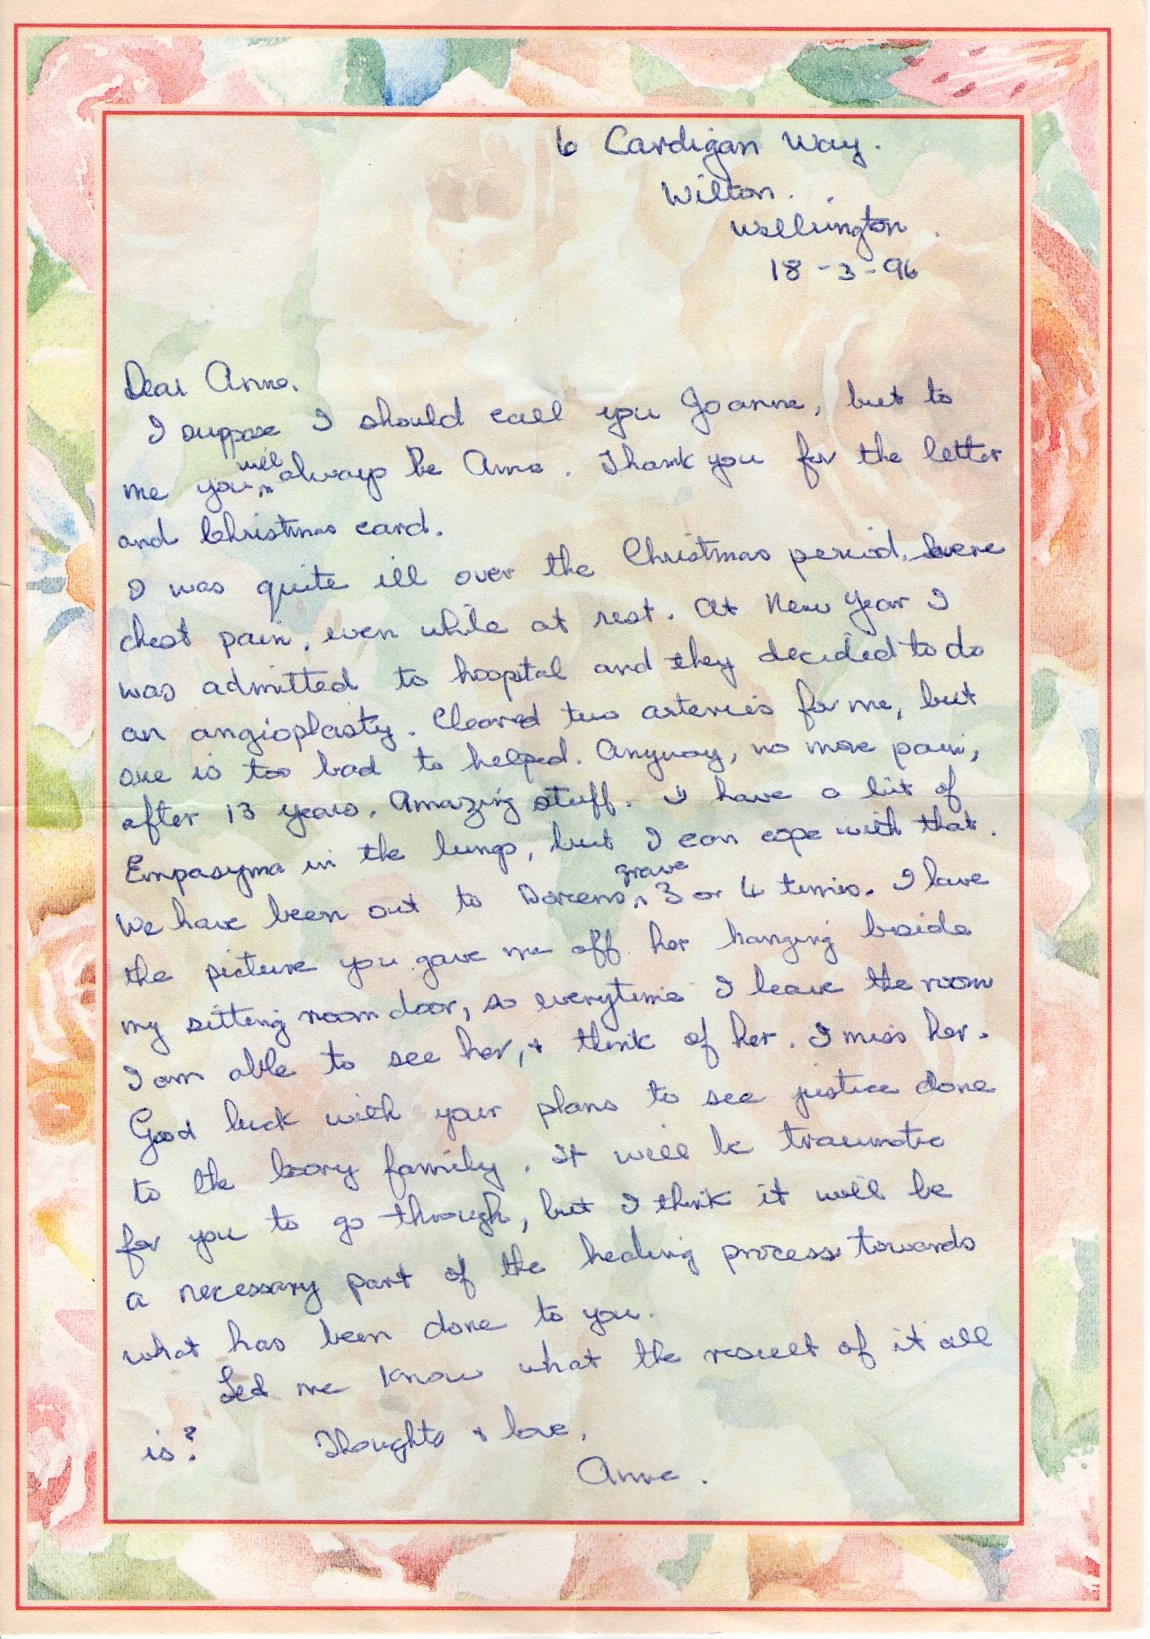 6 Cardigan Way.
Wilton.
Wellington.
18-3-96
Dear Anne.
I suppose I should call you Joanne, but to
me you will always be Anne. Thank you for the letter
and Christmas card.
I was quite ill over the Christmas period,
chest pain, even while at rest. At New Year I
was admitted to hosptal and they decided to do
an angioplasty. Cleared two arteries for me, but
one is too bad to helped. Anyway, no more pain,
after 13 years. Amazing stuff. I have a bit of
Empasyma in the lungs, but I can cope with that.
We have been out to Dorcens grave 3 or 4 times. I have
the picture you gave me off her hanging beside
my sitting room door, so everytime I leave the room
I am able to see her, + think of her. I miss her.
Good luck with your plans to see justice done
to the family. It will be traumatic
for you to go through, but I think it will be
a necessary part of the healing process towards
what has been done to you.
Let me know what the result of it all
is? Thoughts + love,
Anne.